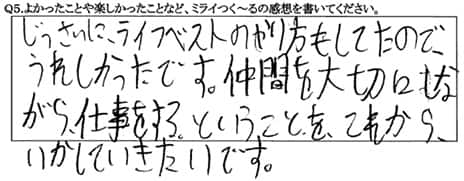 Q5.よかったことや楽しかったことなど、ミライつく～るの感想を書いてください。
じっさいに、ライフベストのやり方もしてたので、
うれしかったです。仲間を大切にしな
がら、仕事をする。ということを、これから、
いかしていきたいです。